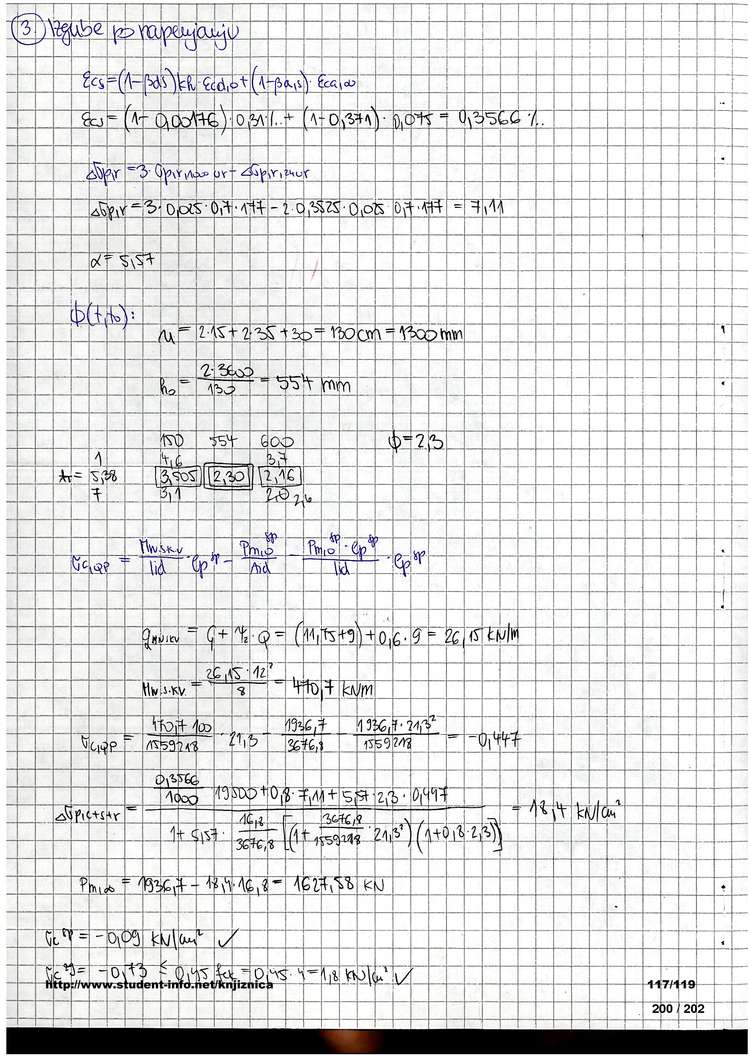 3. Izgube po napenjanju
εcs = (1-βds)kh·εcd,0 + (1-βa,s)·εca,∞
εcs = (1-0,00176)·0,31‰ + (1-0,371)·0,075 = 0,3566‰
Δσp,r = 3·σp,r,1000ur - Δσp,r,24ur
Δσp,r = 3·0,025·0,7·177 - 2·0,3525·0,025·0,7·177 = 7,11
α = 5,57
ϕ(t,t0):
u = 2·15+2·35+30 = 130cm = 1300mm
h0 = 2·3600/130 = 554 mm
150 554 600 ϕ=2,3
1 4,6 3,7
tr= 5,38 3,505 2,30 2,16
7 3,1 2,0 2,6
σc,QP = MN.S.KV/Iid · ep^sp - Pm,0^sp/Aid - Pm,0^sp·ep^sp/Iid · ep^sp
qMN.KV = G+Ψ2·Q = (11,75+9)+0,6·9 = 26,15 kN/m
MN.S.KV. = 26,15·12²/8 = 470,7 kNm
σc,QP = 470,7·100/1559218 · 21,3 - 1936,7/3676,8 - 1936,7·21,3²/1559218 = -0,447
Δσp,c+s+r = (0,3566/1000 19500 + 0,8·7,11 + 5,57·2,3·0,447) / (1+5,57· 16,8/3676,8 [(1+ 3676,8/1559218 ·21,3²)(1+0,8·2,3)]) = 18,4 kN/cm²
Pm,∞ = 1936,7 - 18,4·16,8 = 1627,58 kN
σc^sp = -0,09 kN/cm² ✓
σc^zg = -0,73 ≤ 0,45 fck = 0,45·4 = 1,8 kN/cm² ✓
http://www.student-info.net/knjiznica 117/119
200 / 202